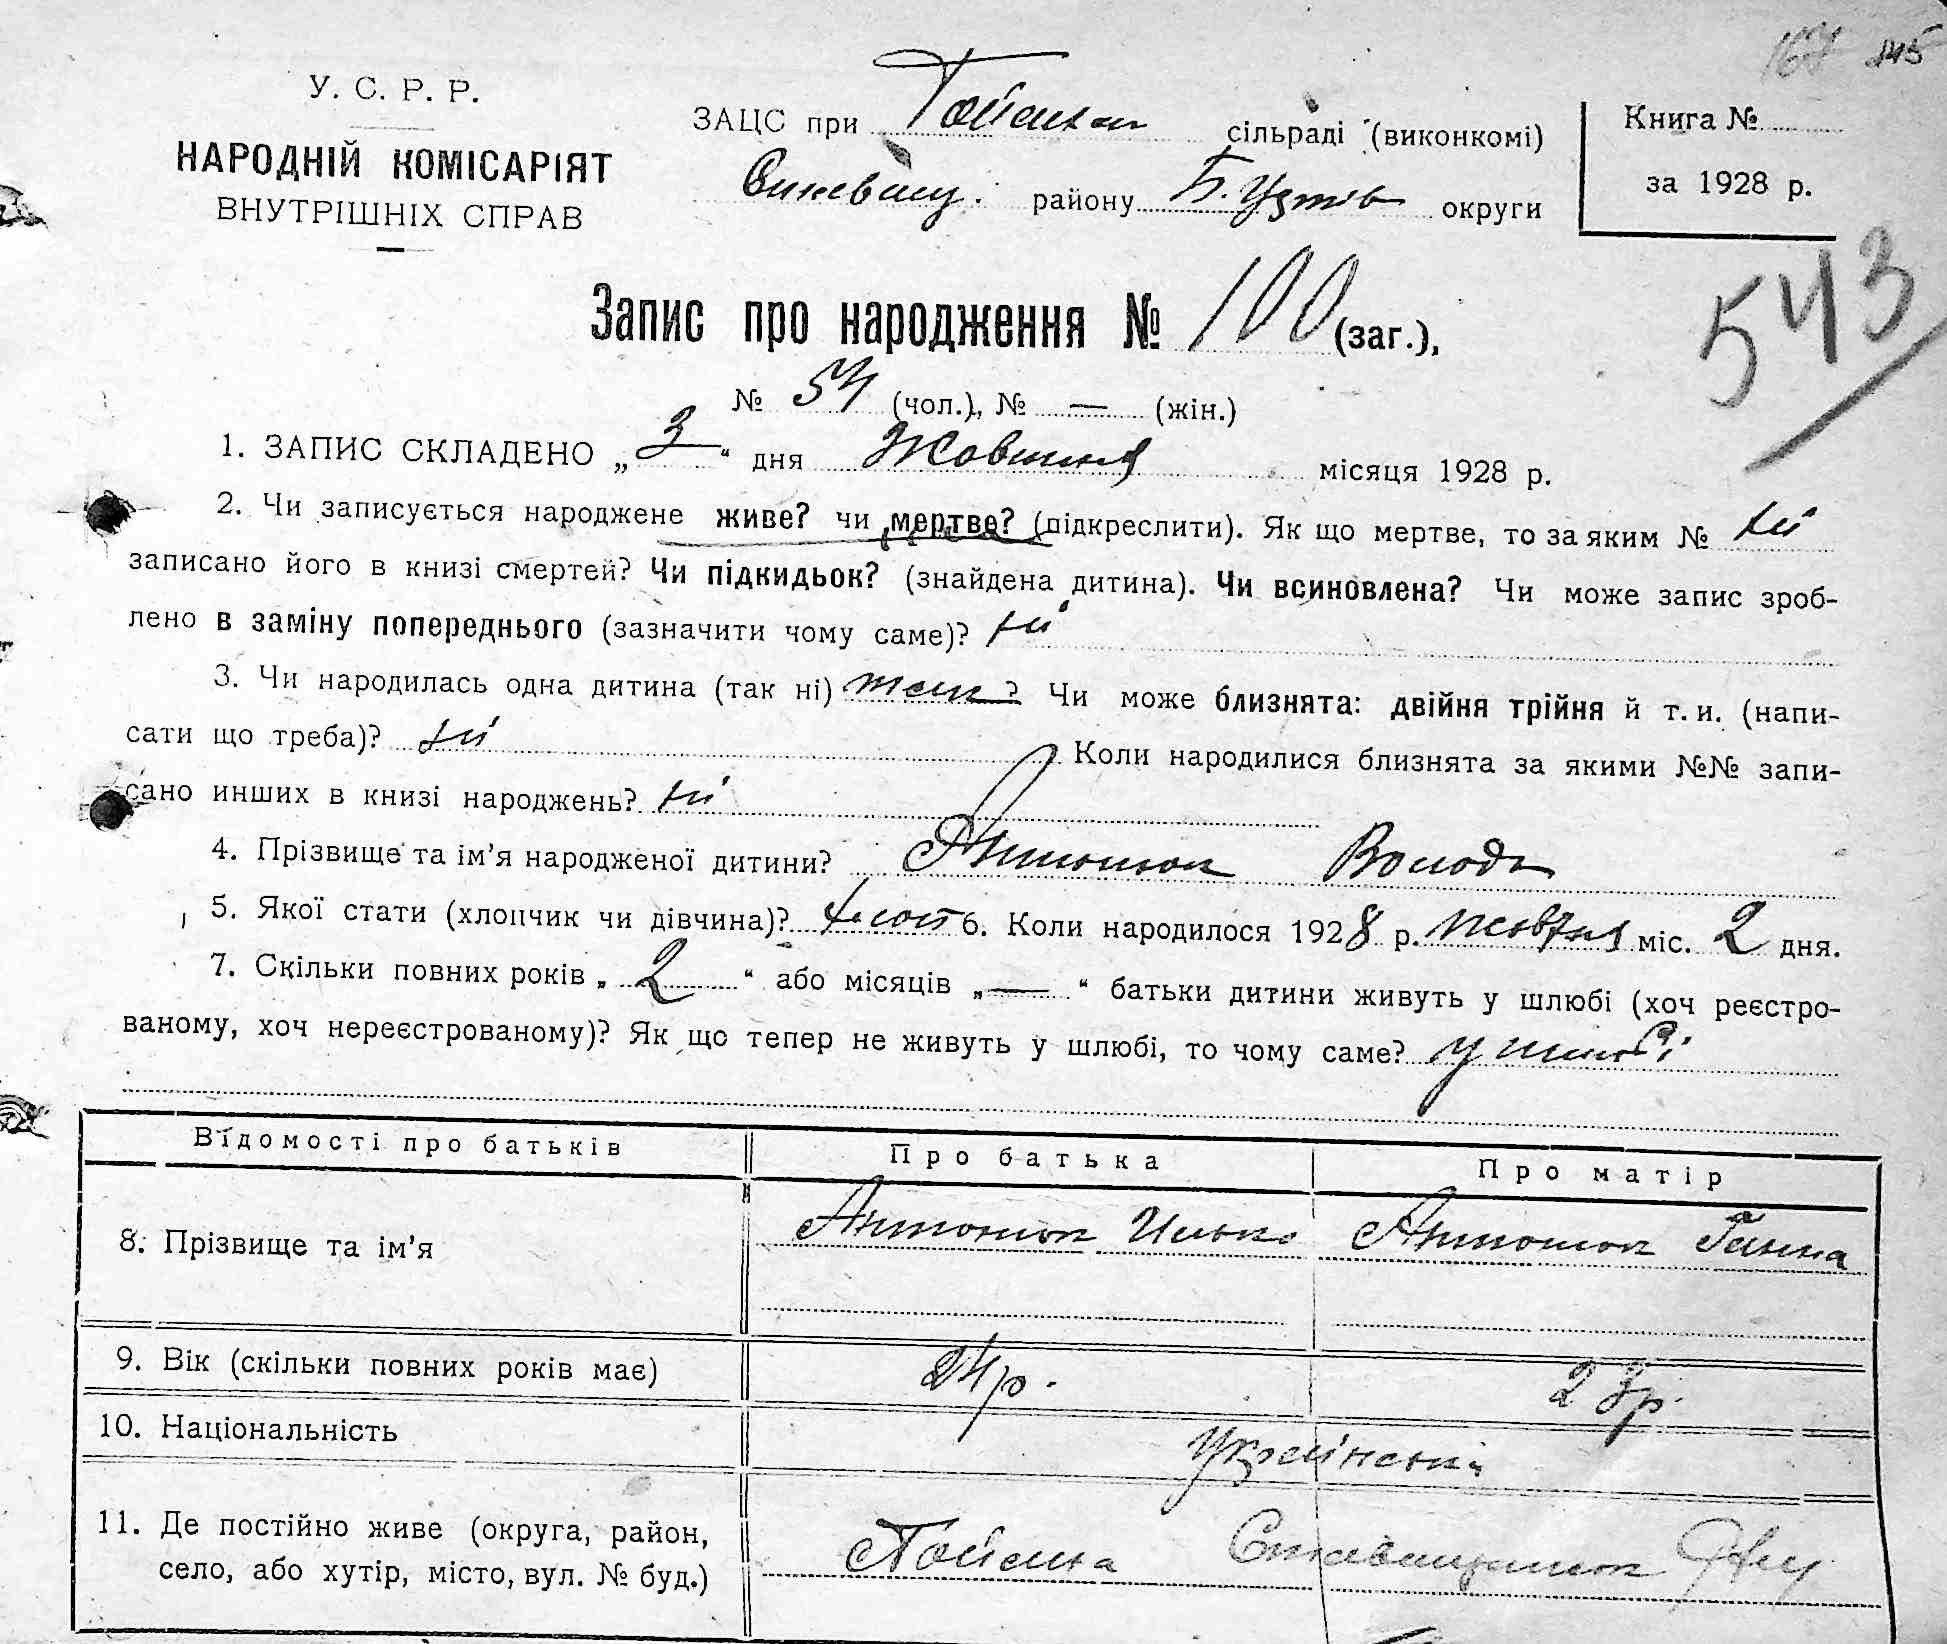 167 145
У. С. Р. Р.
НАРОДНІЙ КОМІСАРІЯТ
ВНУТРІШНІХ СПРАВ
ЗАЦС при сільраді (виконкомі)
району Б. Церків округи
Книга №
за 1928 р.
543
Запис про народження № 100 (заг.),
№ 54 (чол.), № — (жін.)
1. ЗАПИС СКЛАДЕНО „ 3 “ дня Жовтня місяця 1928 р.
2. Чи записується народжене живе? чи мертве? (підкреслити). Як що мертве, то за яким № ні
записано його в книзі смертей? Чи підкидьок? (знайдена дитина). Чи всиновлена? Чи може запис зроб-
лено в заміну попереднього (зазначити чому саме)? ні
3. Чи народилась одна дитина (так ні) так ? Чи може близнята: двійня трійня й т. и. (напи-
сати що треба)? ні Коли народилися близнята за якими №№ запи-
сано инших в книзі народжень? ні
4. Прізвище та ім’я народженої дитини? Антонюк Володь
5. Якої стати (хлопчик чи дівчина)? хлоп 6. Коли народилося 1928 р. жовтня міс. 2 дня.
7. Скільки повних років „ 2 “ або місяців „ — “ батьки дитини живуть у шлюбі (хоч реєстро-
ваному, хоч нереєстрованому)? Як що тепер не живуть у шлюбі, то чому саме? у шлюбі
Відомості про батьків Про батька Про матір
8. Прізвище та ім’я Антонюк Илько Антонюк Ганна
9. Вік (скільки повних років має) 24 р. 23 р.
10. Національність Українські
11. Де постійно живе (округа, район,
село, або хутір, місто, вул. № буд.)